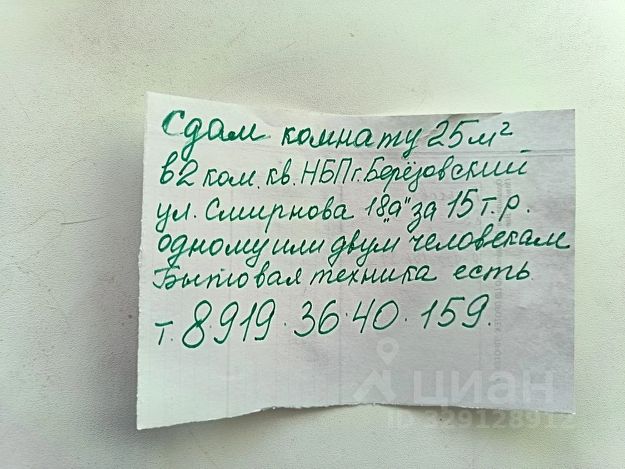 Сдам комнату 25м²
в 2 ком. кв. НБП г. Берёзовский
ул. Смирнова 18"а" за 15 т.р.
одному или двум человекам
Бытовая техника есть
т. 8.919.36.40.159.
циан
ID 329128912